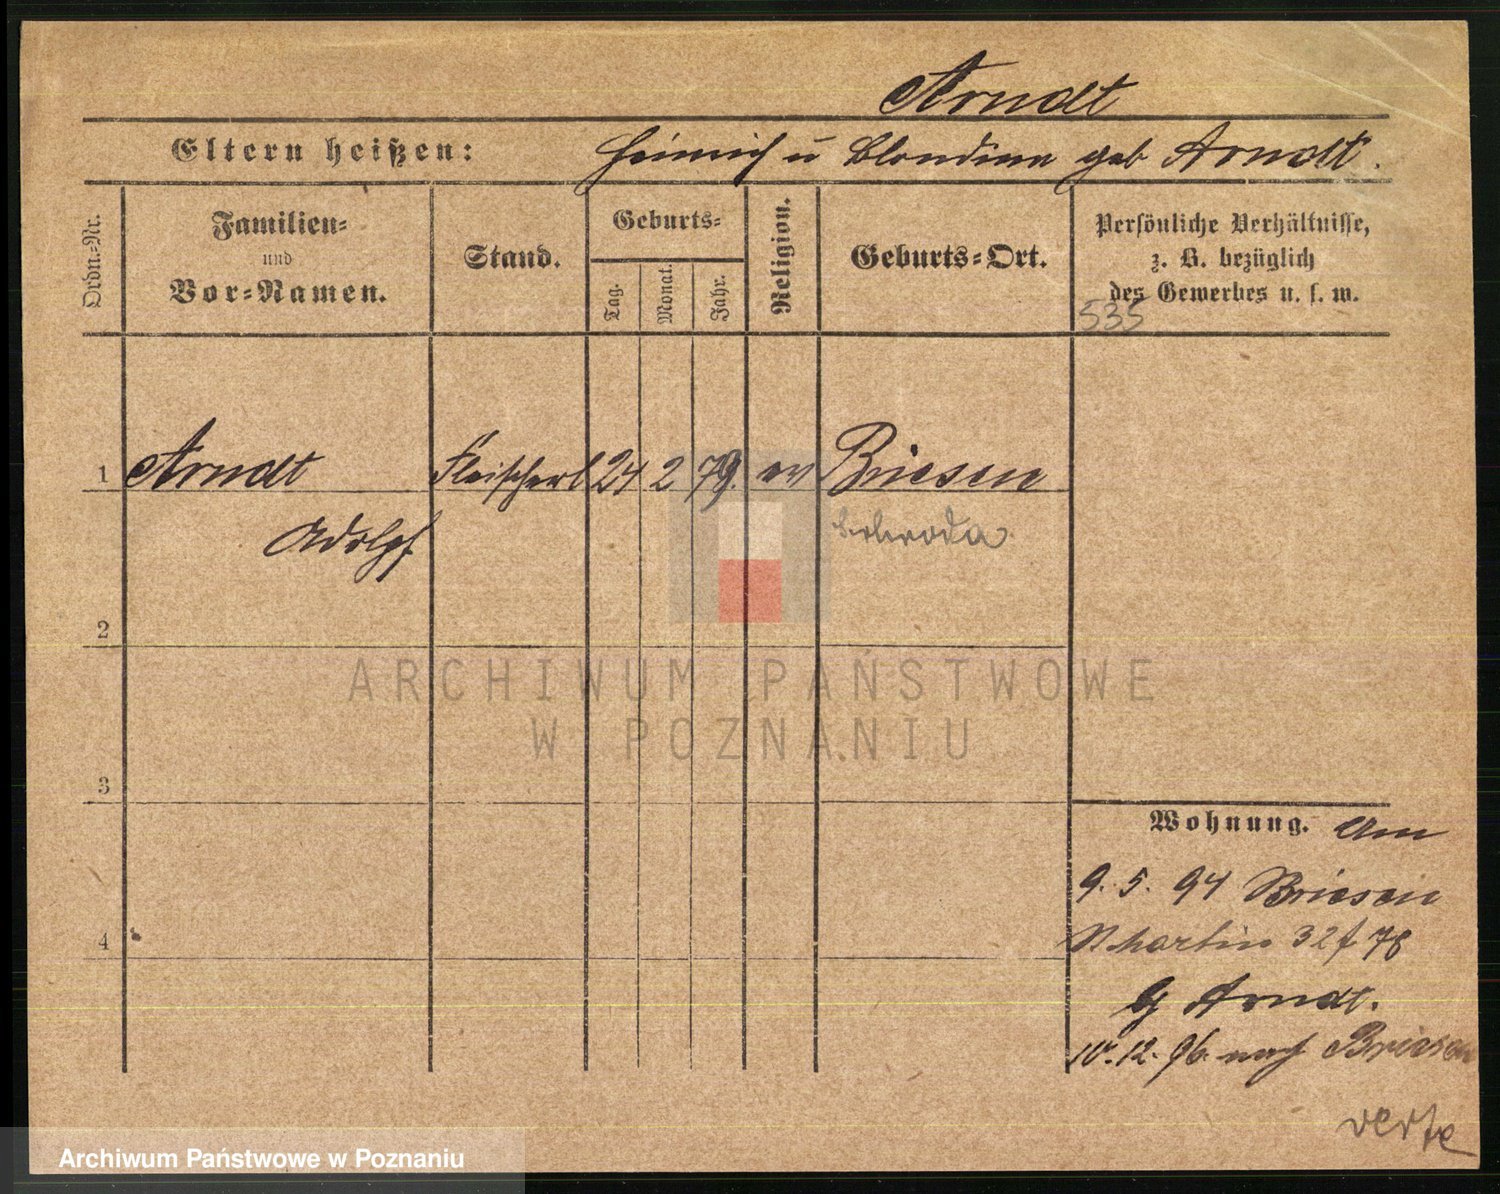 Arndt
Eltern heißen: Heinrich u Blondina geb Arndt.
Ordn.-Nr.
Familien-
und
Vor-Namen.
Stand.
Geburts-
Tag.
Monat.
Jahr.
Religion.
Geburts-Ort.
Persönliche Verhältnisse,
z. B. bezüglich
des Gewerbes u. s. w.
535
1 Arndt Fleischerl 24 2 79. ev Briesen
Adolf
2
3
4
Wohnung. Am
9. 5. 94 Briesen
St Martin 32
Arndt.
10. 12. 96. nach Briesen
verte
ARCHIWUM PAŃSTWOWE
W POZNANIU
Archiwum Państwowe w Poznaniu